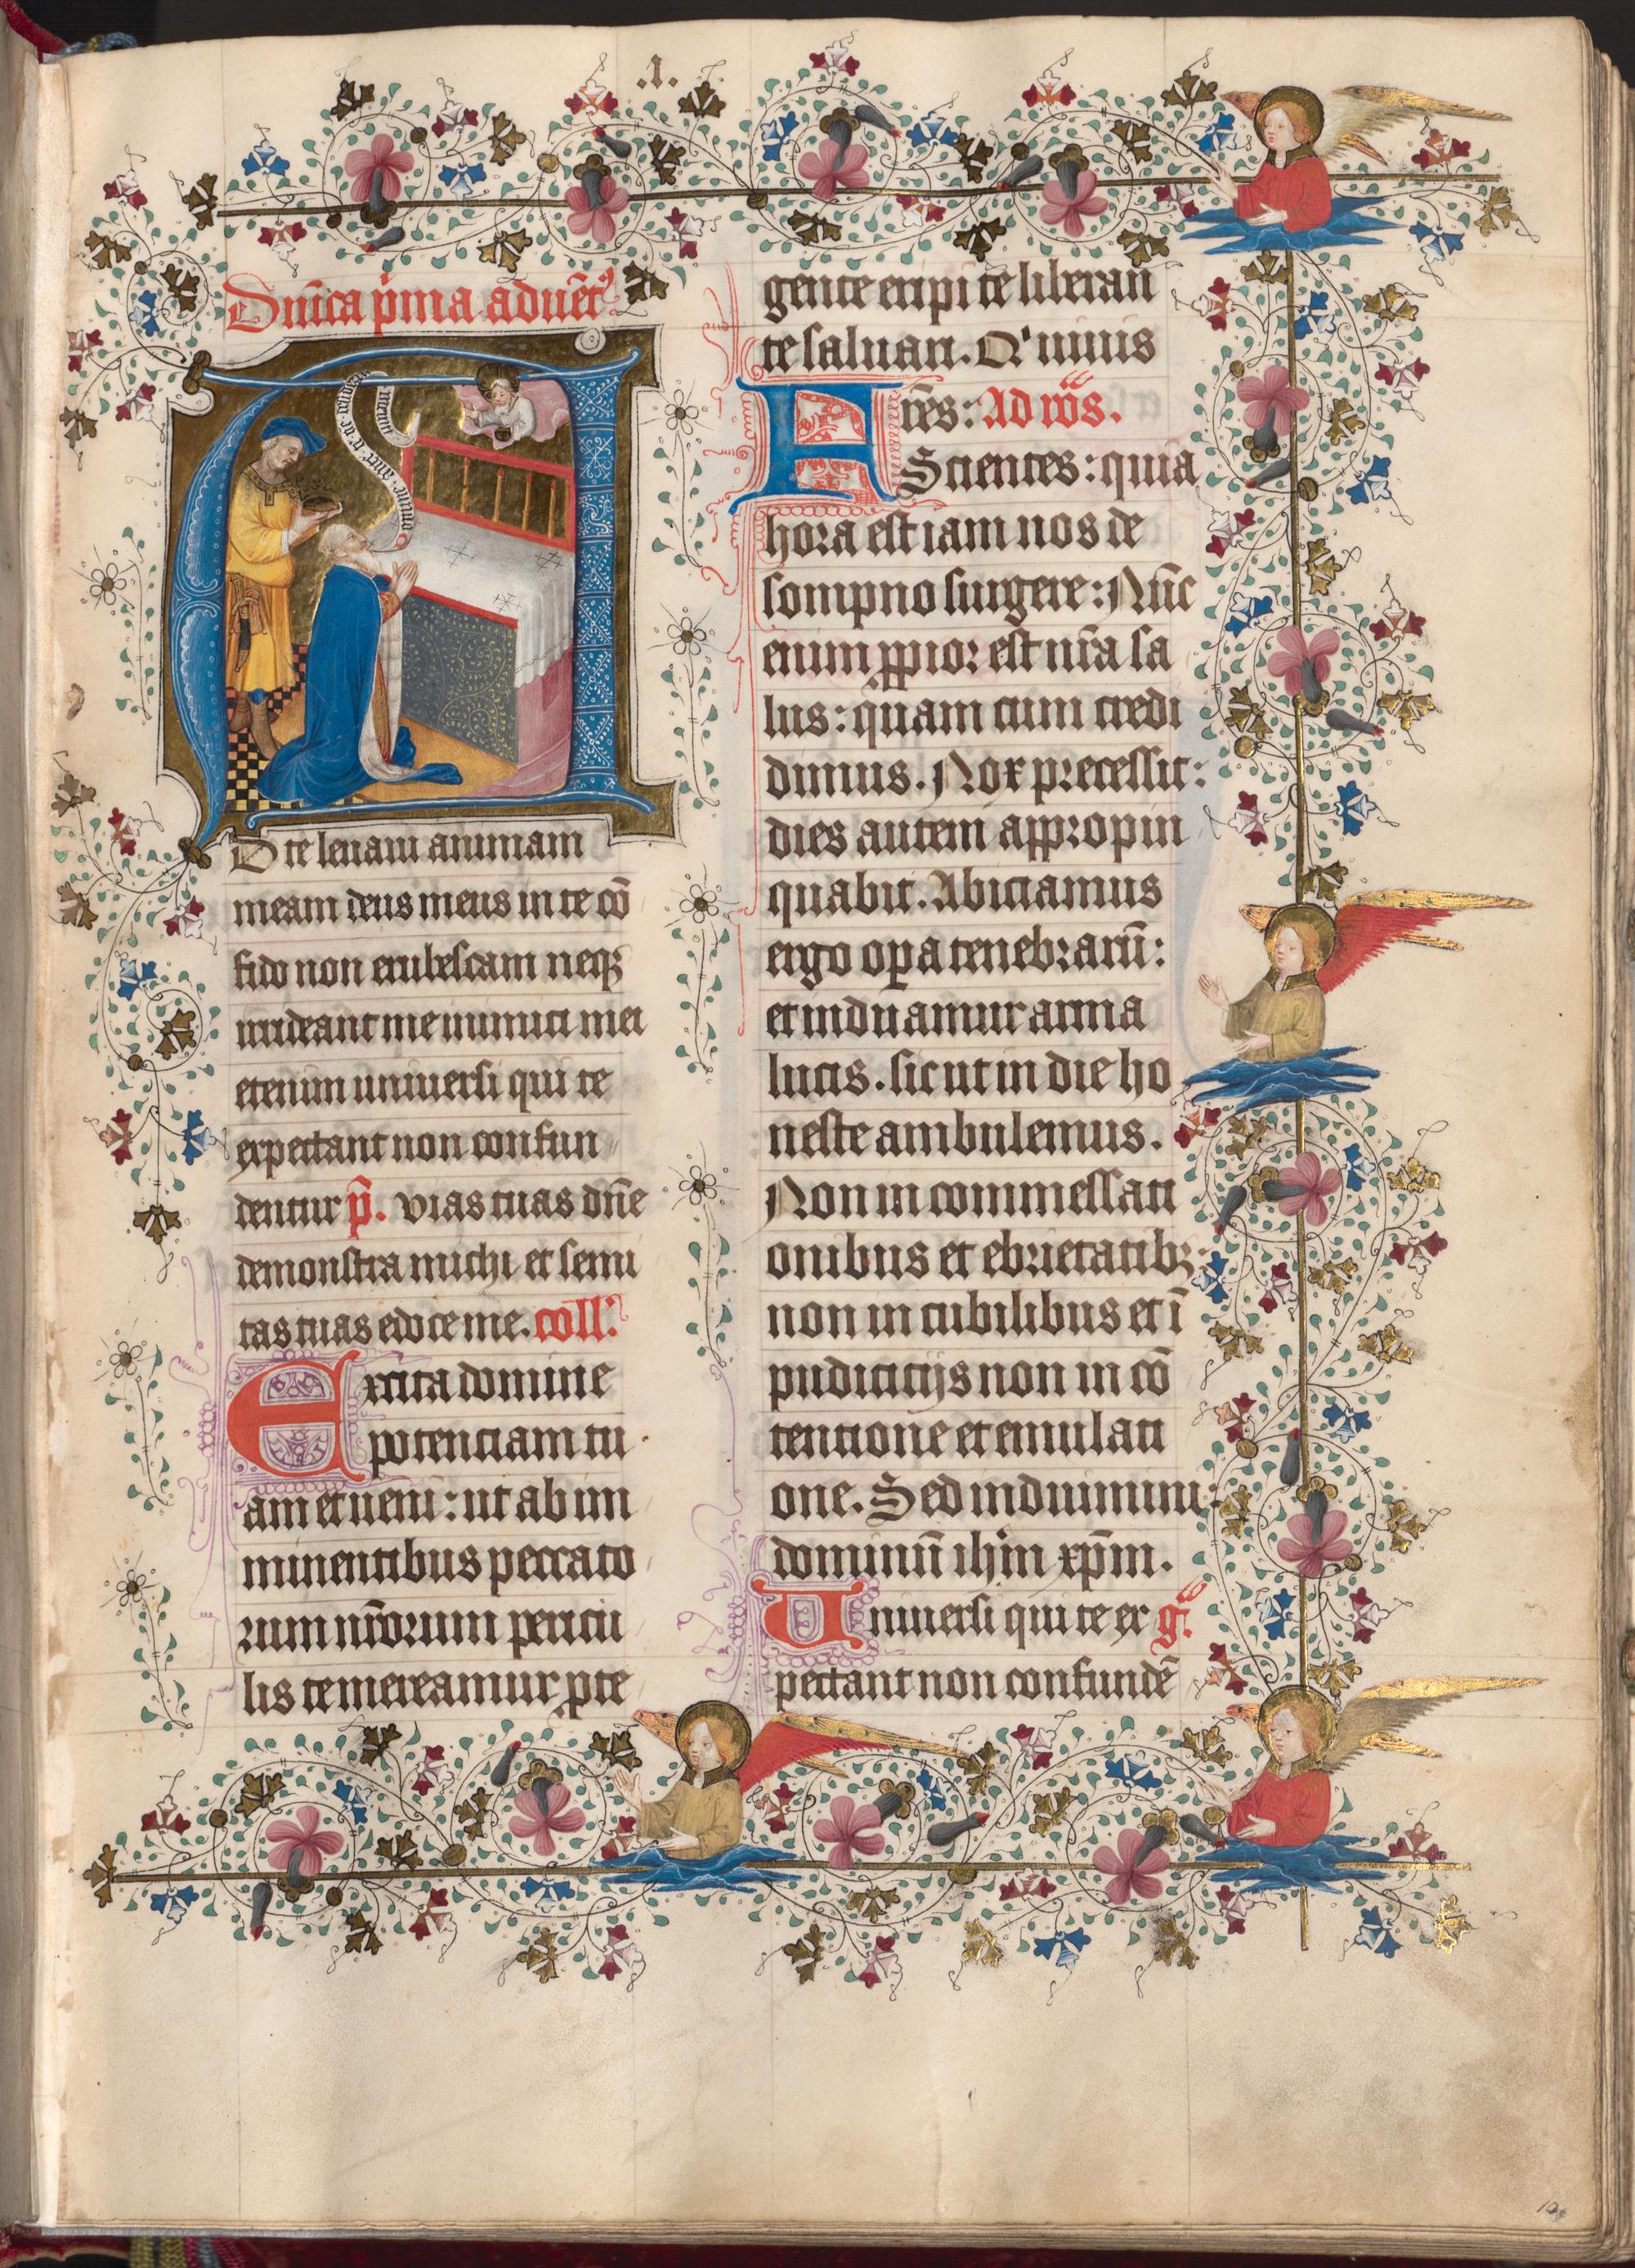 .I.
Dn̄ica p̄ma aduēt᷒
D te leuaui animam
meam deus meus in te cō
fido non erubescam neqꝫ
irrideant me inimici mei
etenim uniuersi qui te
expectant non confun
dentur p̄. vias tuas dn̄e
demonstra michi et semi
tas tuas edoce me. coll'.
Excita domine
potenciam tu
am et ueni: ut ab im
minentibus peccato
rum nr̄orum pericu
lis te mereamur ꝓte
gente eripi te liberan
te saluari. Q' uiuis
Fr̄es: Ad ro͞s.
Scientes: quia
hora est iam nos de
sompno surgere: Nūc
enim ꝓpior est nr̄a sa
lus: quam cum credi
dimus. Nox precessit:
dies autem appropin
quabit. Abiciamus
ergo oꝑa tenebrarū:
et induamur arma
lucis. sicut in die ho
neste ambulemus.
Non in commessati
onibus et ebrietatibꝫ
non in cubilibus et ī
pudicitijs non in cō
tentione et emulati
one. Sed induimini
dominū ihm̄ xp̄m.
Uniuersi qui te ex g᷑.
pectant non confundē